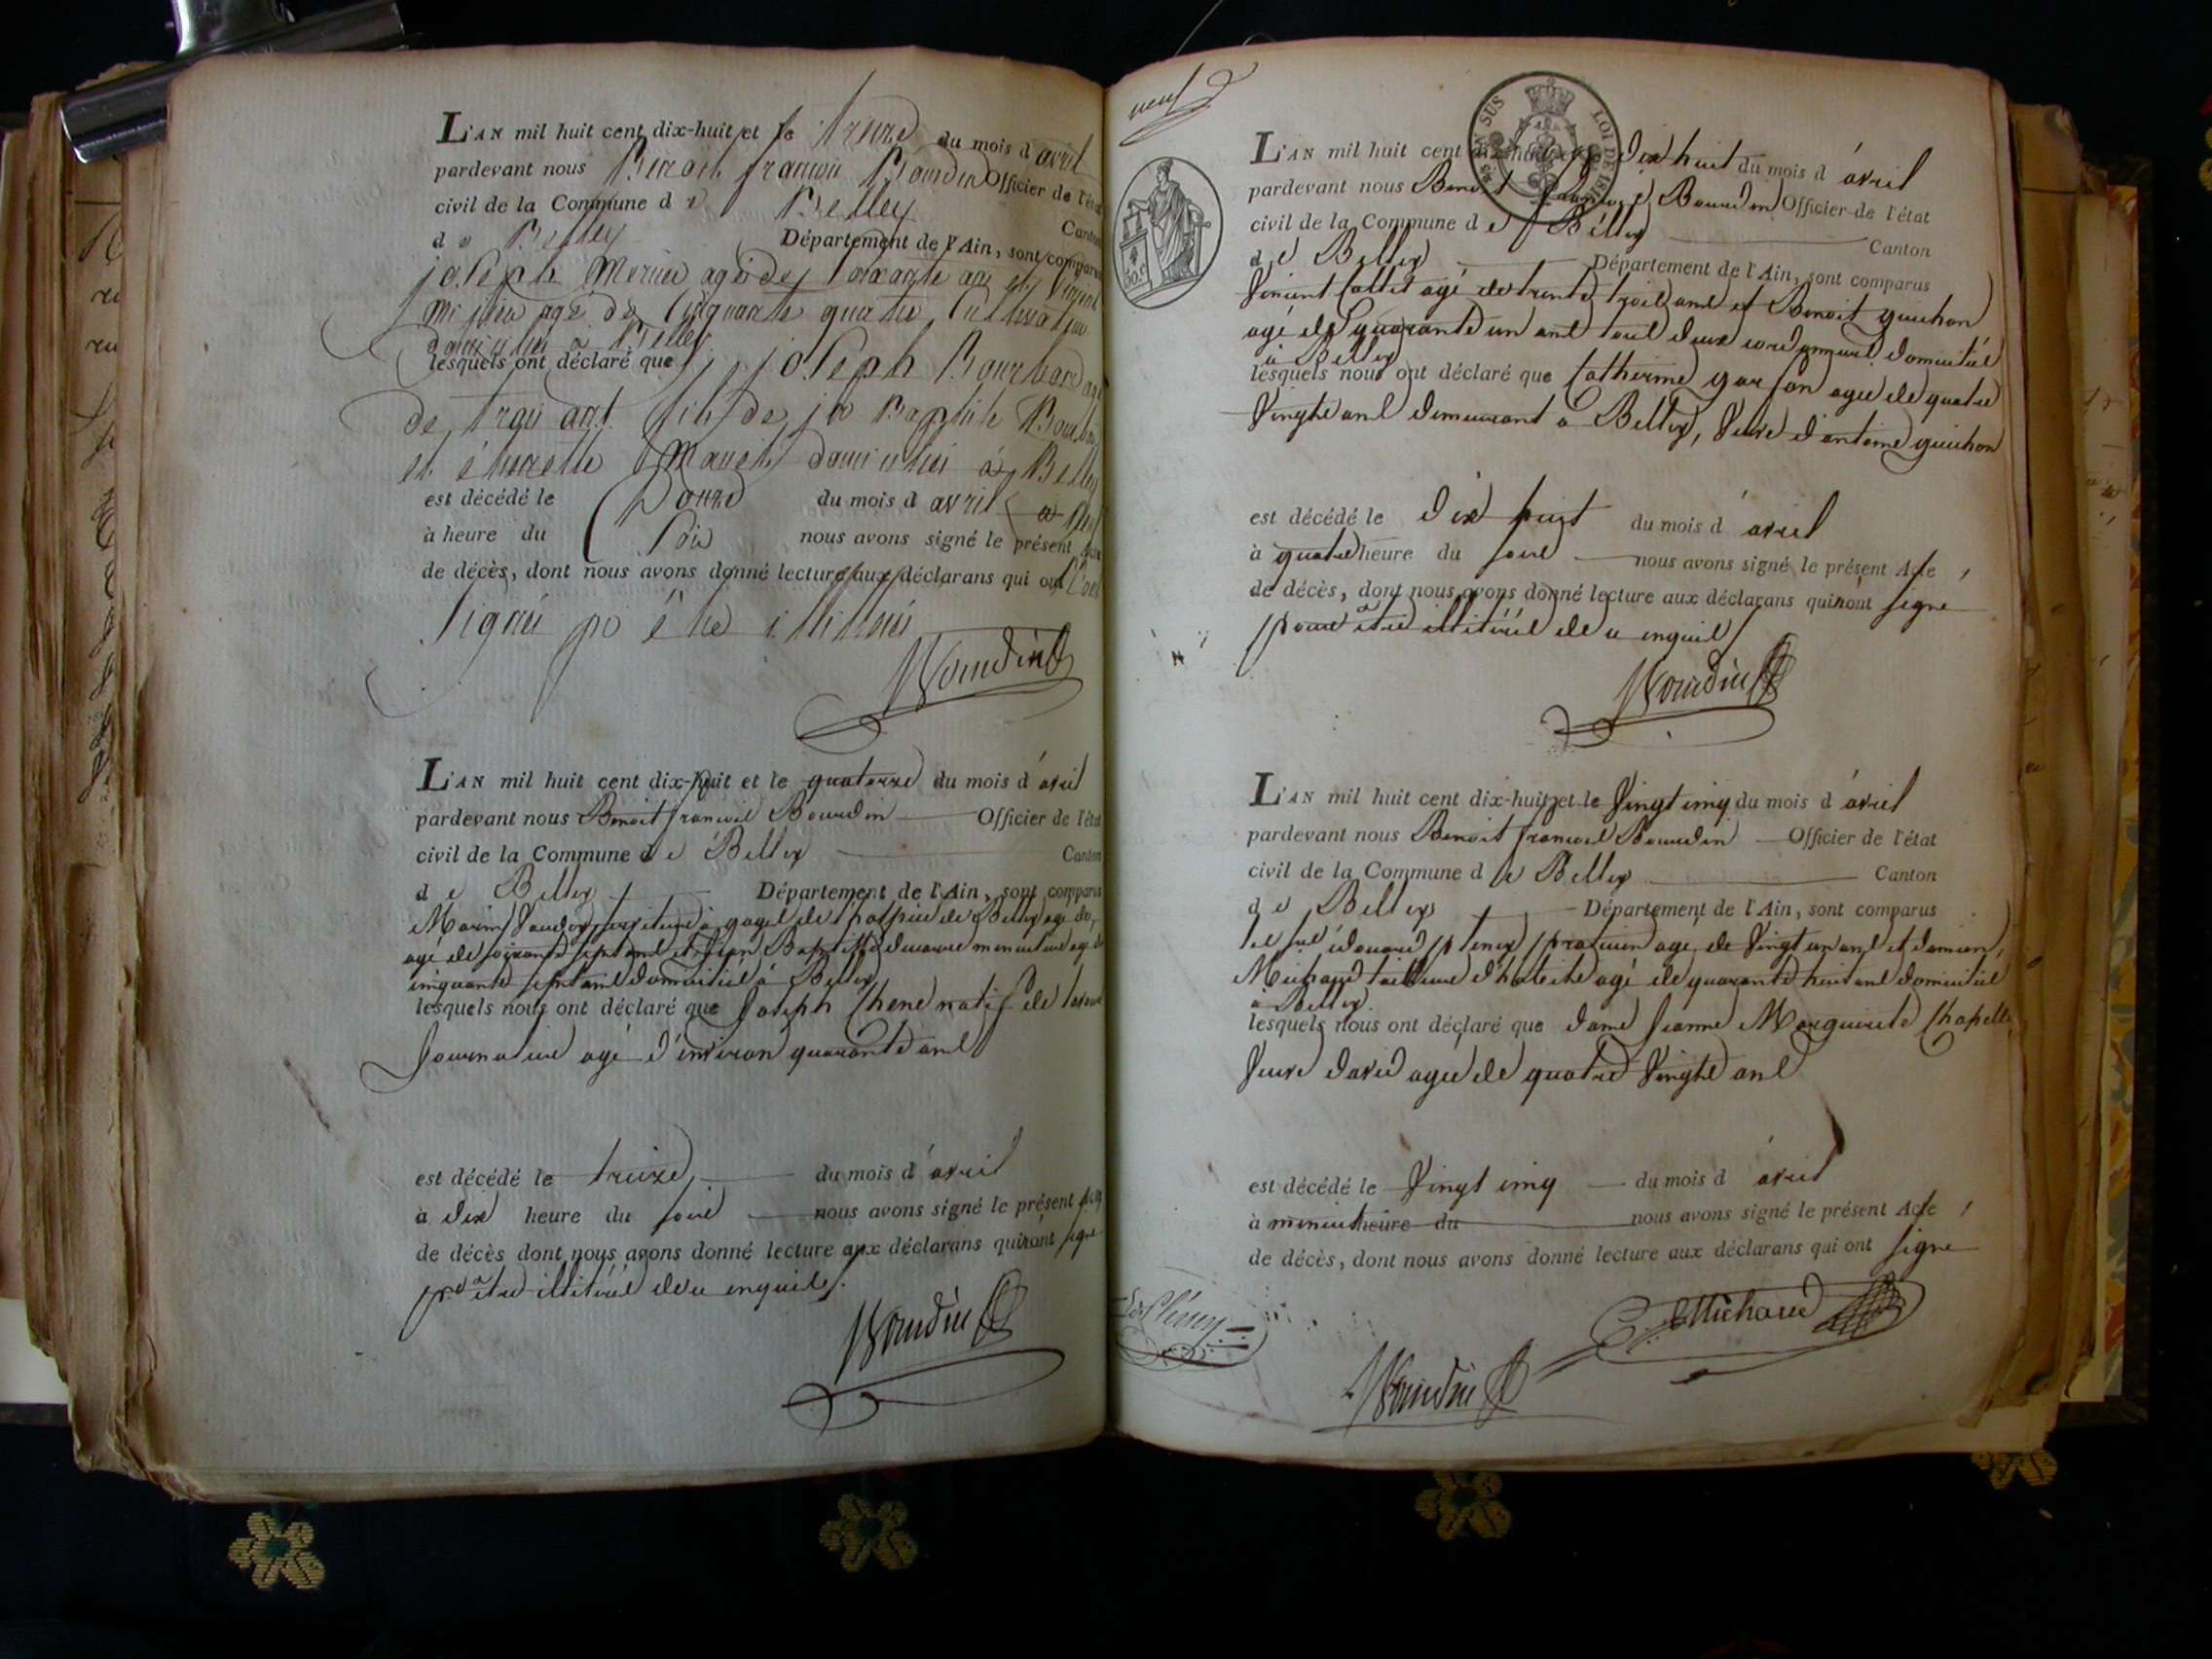 L'AN mil huit cent dix-huit et le treize du mois d avril
pardevant nous Benoit françois Bourdin Officier de l'état
civil de la Commune d e Belley
Canton
d e Belley Département de l'Ain, sont comparus
joseph agé de soixante ans et Vincent
agé de Cinquante quatre Cultivateur
domiciliés a Belley
lesquels ont déclaré que joseph Bourbon
de trois ans fils de jn Baptiste
et domiciliés à Belley
est décédé le Douze du mois d avril
à heure du Soir nous avons signé le présent
de décès, dont nous avons donné lecture aux déclarans qui ont
signés pr être illitérés
Bourdin
L'AN mil huit cent dix-huit et le quatorze du mois d'avril
pardevant nous Benoit francois Bourdin Officier de l'état
civil de la Commune d e Belley Canton
d e Belley Département de l'Ain, sont comparus
Marin à gages de l'hospice de Belley agé de
agé de soixante sept ans et Jean Baptiste agé de
cinquante sept ans domiciliés à Belley
lesquels nous ont déclaré que Joseph Chene natif de
Journalier agé d'environ quarante ans
est décédé le treize du mois d'avril
à dix heure du soir nous avons signé le présent Acte
de décès dont nous avons donné lecture aux déclarans qui n'ont signé
pr être illitérés de ce enquis.
Bourdin
neuf
50 c
EN SUS LOI DE 1816
L'AN mil huit cent dix-huit et le dix huit du mois d'avril
pardevant nous Benoit françois Bourdin Officier de l'état
civil de la Commune d e Belley
Canton
d e Belley Département de l'Ain, sont comparus
Vincent Cottet agé de trente trois ans et Benoit guichon
agé de quarante un ans tous deux cordonniers domiciliés
à Belley
lesquels nous ont déclaré que Catherine garson agée de quatre
Vingts ans demeurant a Belley, Veuve d'antoine guichon
est décédé le dix huit du mois d'avril
à quatre heure du soir nous avons signé le présent Acte
de décès, dont nous avons donné lecture aux déclarans qui n'ont signé
pour être illitérés de ce enquis
Bourdin
L'AN mil huit cent dix-huit et le Vingt cinq du mois d'avril
pardevant nous Benoit francois Bourdin Officier de l'état
civil de la Commune d e Belley Canton
d e Belley Département de l'Ain, sont comparus
les srs édouard praticien agé de Vingt un ans et damien
Michaud tailleur d'habits agé de quarante huit ans domiciliés
a Belley.
lesquels nous ont déclaré que dame Jeanne Marguerite Chapelle
Veuve david agée de quatre Vingts ans
est décédé le Vingt cinq du mois d avril
à minuit heure du nous avons signé le présent Acte
de décès, dont nous avons donné lecture aux déclarans qui ont signé
Michaud
Bourdin